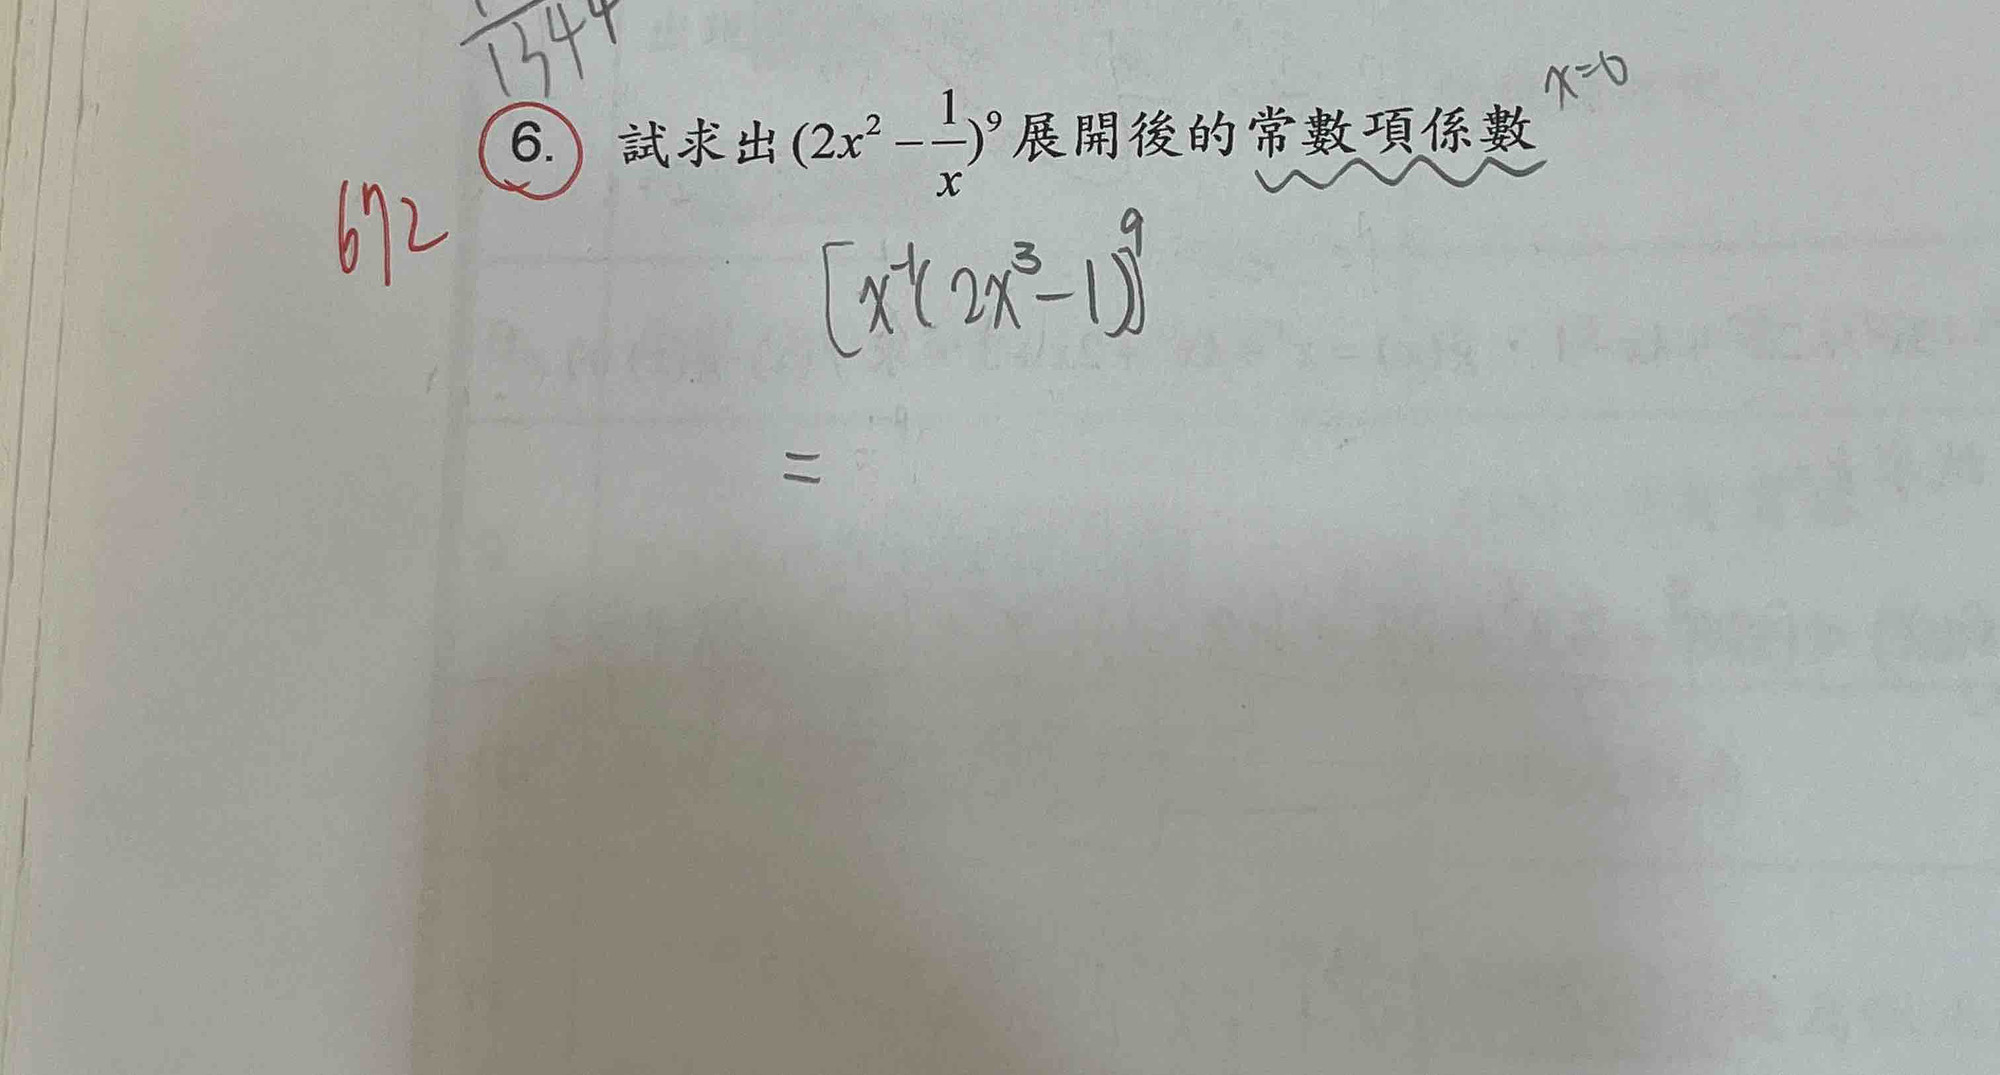 1344
x=0
6. 試求出(2x² - 1/x)⁹展開後的常數項係數
672
[x⁻¹(2x³-1)]⁹
=